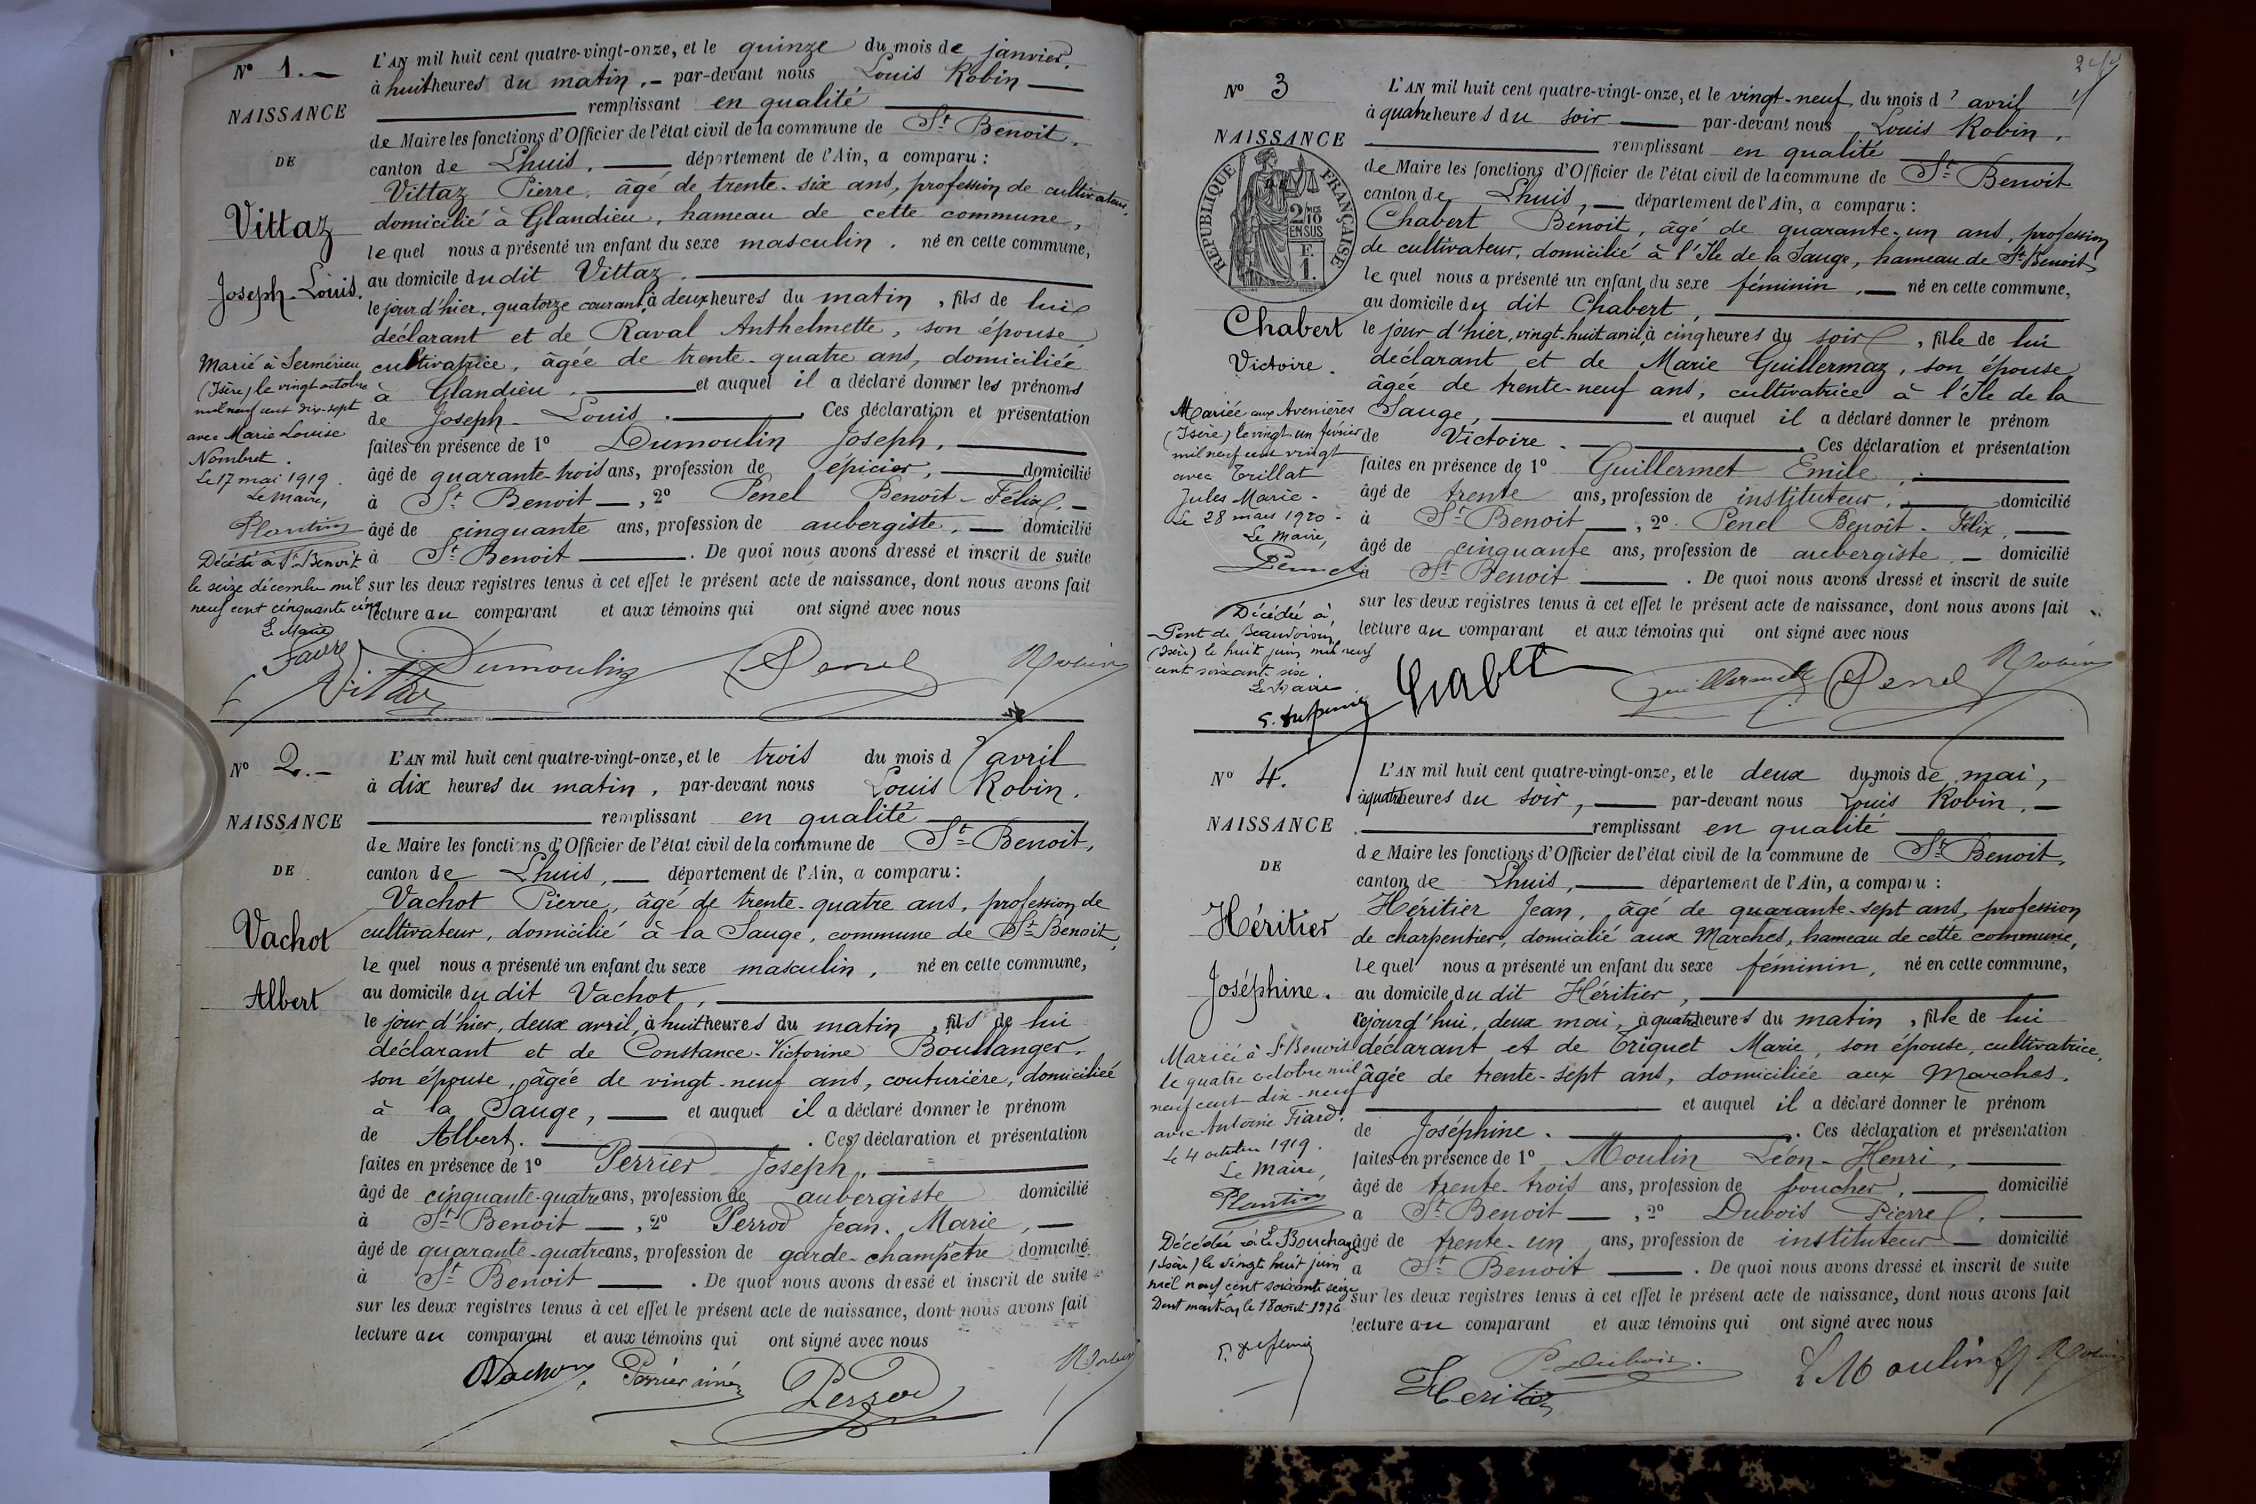 N° 1.
NAISSANCE
DE
Vittaz
Joseph-Louis.
Marié à Sermérieu
(Isère) le vingt octobre
mil neuf cent dix-sept
avec Marie Louise
Nombret.
Le 17 mai 1919.
Le Maire,
Plantin
Décédé à St Benoit
le seize décembre mil
neuf cent cinquante cinq
Le Maire
Favre
L'AN mil huit cent quatre-vingt-onze, et le quinze du mois de janvier,
à huit heures du matin, par-devant nous Louis Robin
remplissant en qualité
de Maire les fonctions d'Officier de l'état civil de la commune de St Benoit,
canton de Lhuis, département de l'Ain, a comparu :
Vittaz Pierre, âgé de trente-six ans, profession de cultivateur,
domicilié à Glandieu, hameau de cette commune,
lequel nous a présenté un enfant du sexe masculin, né en cette commune,
au domicile du dit Vittaz,
le jour d'hier, quatorze courant, à deux heures du matin, fils de lui
déclarant et de Raval Anthelmette, son épouse,
cultivatrice, âgée de trente-quatre ans, domiciliée
à Glandieu, et auquel il a déclaré donner les prénoms
de Joseph-Louis. Ces déclaration et présentation
faites en présence de 1° Dumoulin Joseph,
âgé de quarante-trois ans, profession de épicier, domicilié
à St Benoit, 2° Penel Benoît-Félix,
âgé de cinquante ans, profession de aubergiste, domicilié
à St Benoit. De quoi nous avons dressé et inscrit de suite
sur les deux registres tenus à cet effet le présent acte de naissance, dont nous avons fait
lecture au comparant et aux témoins qui ont signé avec nous
Vittaz Dumoulin Penel Robin
N° 2.
NAISSANCE
DE
Vachot
Albert
L'AN mil huit cent quatre-vingt-onze, et le trois du mois d'avril
à dix heures du matin, par-devant nous Louis Robin,
remplissant en qualité
de Maire les fonctions d'Officier de l'état civil de la commune de St Benoit,
canton de Lhuis, département de l'Ain, a comparu :
Vachot Pierre, âgé de trente-quatre ans, profession de
cultivateur, domicilié à la Sauge, commune de St Benoit,
lequel nous a présenté un enfant du sexe masculin, né en cette commune,
au domicile du dit Vachot,
le jour d'hier, deux avril, à huit heures du matin, fils de lui
déclarant et de Constance-Victorine Boullanger,
son épouse, âgée de vingt-neuf ans, couturière, domiciliée
à la Sauge, et auquel il a déclaré donner le prénom
de Albert. Ces déclaration et présentation
faites en présence de 1° Perrier Joseph,
âgé de cinquante-quatre ans, profession de aubergiste domicilié
à St Benoit, 2° Perrod Jean-Marie,
âgé de quarante-quatre ans, profession de garde-champêtre domicilié
à St Benoit. De quoi nous avons dressé et inscrit de suite
sur les deux registres tenus à cet effet le présent acte de naissance, dont nous avons fait
lecture au comparant et aux témoins qui ont signé avec nous
Vachot Perrier aîné Perrod Robin
N° 3
NAISSANCE
RÉPUBLIQUE FRANÇAISE
2/10 MES
EN SUS
F.
1.
Chabert
Victoire.
Mariée aux Avenières
(Isère) le vingt un février
mil neuf cent vingt
avec Trillat
Jules Marie.
Le 28 mars 1920.
Le Maire,
Décédée à
Pont de Beauvoisin,
(Isère) le huit juin mil neuf
cent soixante six
Le Maire
L'AN mil huit cent quatre-vingt-onze, et le vingt-neuf du mois d'avril
à quatre heures du soir par-devant nous Louis Robin,
remplissant en qualité
de Maire les fonctions d'Officier de l'état civil de la commune de St Benoit
canton de Lhuis, département de l'Ain, a comparu :
Chabert Benoit, âgé de quarante-un ans, profession
de cultivateur, domicilié à l'Ile de la Sauge, hameau de St Benoit
lequel nous a présenté un enfant du sexe féminin, né en cette commune,
au domicile du dit Chabert,
le jour d'hier, vingt-huit avril, à cinq heures du soir, fille de lui
déclarant et de Marie Guillermaz, son épouse,
âgée de trente-neuf ans, cultivatrice à l'Ile de la
Sauge, et auquel il a déclaré donner le prénom
de Victoire. Ces déclaration et présentation
faites en présence de 1° Guillermet Emile,
âgé de trente ans, profession de instituteur, domicilié
à St Benoit, 2° Penel Benoît-Félix,
âgé de cinquante ans, profession de aubergiste, domicilié
à St Benoit. De quoi nous avons dressé et inscrit de suite
sur les deux registres tenus à cet effet le présent acte de naissance, dont nous avons fait
lecture au comparant et aux témoins qui ont signé avec nous
Chabert Guillermet Penel Robin
N° 4.
NAISSANCE
DE
Héritier
Joséphine.
Mariée à St Benoit
le quatre octobre mil
neuf cent dix-neuf
avec Antoine Fiard.
Le 4 octobre 1919.
Le Maire,
Plantin
Décédée à Le Bouchage
(Isère) le vingt huit juin
mil neuf cent soixante seize
Dont mention le 18 août 1976
L'AN mil huit cent quatre-vingt-onze, et le deux du mois de mai,
à quatre heures du soir, par-devant nous Louis Robin,
remplissant en qualité
de Maire les fonctions d'Officier de l'état civil de la commune de St Benoit,
canton de Lhuis, département de l'Ain, a comparu :
Héritier Jean, âgé de quarante-sept ans, profession
de charpentier, domicilié aux Marches, hameau de cette commune,
lequel nous a présenté un enfant du sexe féminin, né en cette commune,
au domicile du dit Héritier,
cejourd'hui, deux mai, à quatre heures du matin, fille de lui
déclarant et de Triquet Marie, son épouse, cultivatrice,
âgée de trente-sept ans, domiciliée aux Marches,
et auquel il a déclaré donner le prénom
de Joséphine. Ces déclaration et présentation
faites en présence de 1° Moulin Léon-Henri,
âgé de trente-trois ans, profession de boucher, domicilié
à St Benoit, 2° Dubois Pierre,
âgé de trente-un ans, profession de instituteur domicilié
à St Benoit. De quoi nous avons dressé et inscrit de suite
sur les deux registres tenus à cet effet le présent acte de naissance, dont nous avons fait
lecture au comparant et aux témoins qui ont signé avec nous
Heritier P. Dubois. L Moulin Robin